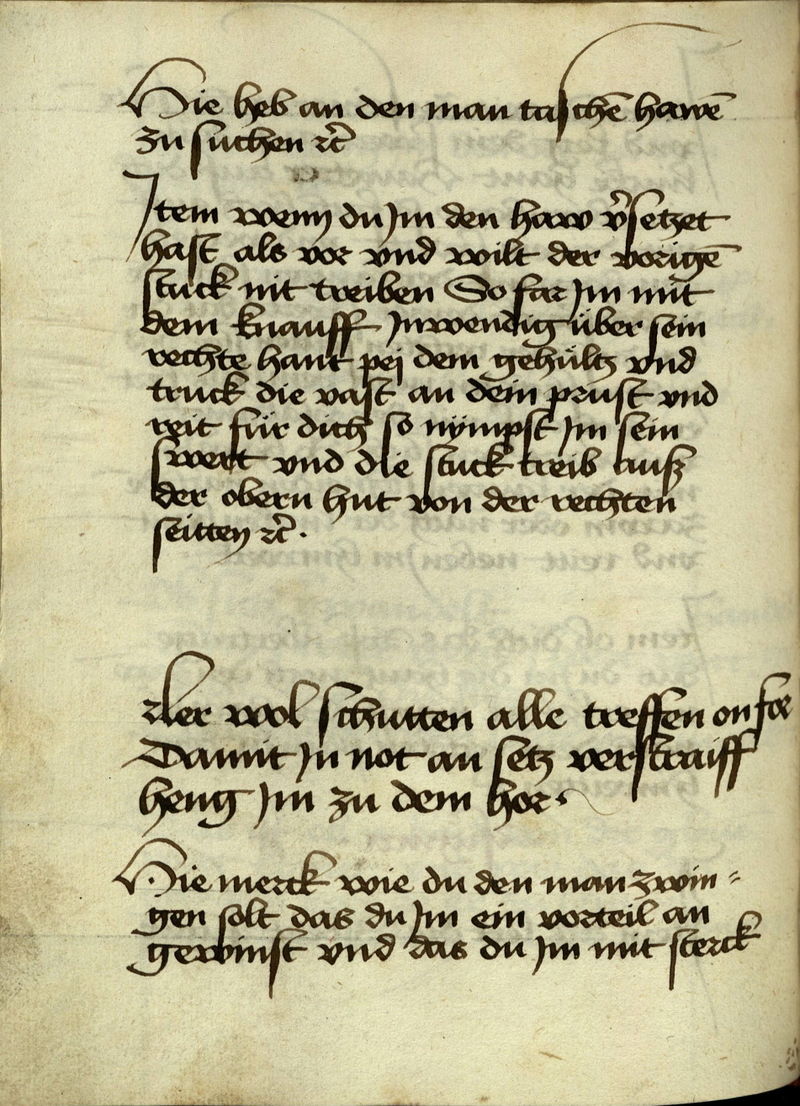 Hie heb an den man taschē hawē
zu suchen ꝛc̄
Item wenn du Im den haw v̄setzet
hast als vor vnd wilt der vorigē
stuck nit treiben So far Im mit
dem knauff Inwendig über sein
rechte hant pej dem gehültz vnd
truck die vast an dein prust vnd
reit für dich so nÿmpst Im sein
swert vnd die stuck treib auß
der obern hut von der rechten
seitten ꝛc̄ .
Der wol schutten alle treffen on for
Damit In not an setz verstraiff
heng Im zu dem hor .
Hie merck wie du den man zwin=
gen solt das du Im ein vorteil an
gewinst vnd das du Im mit sterck